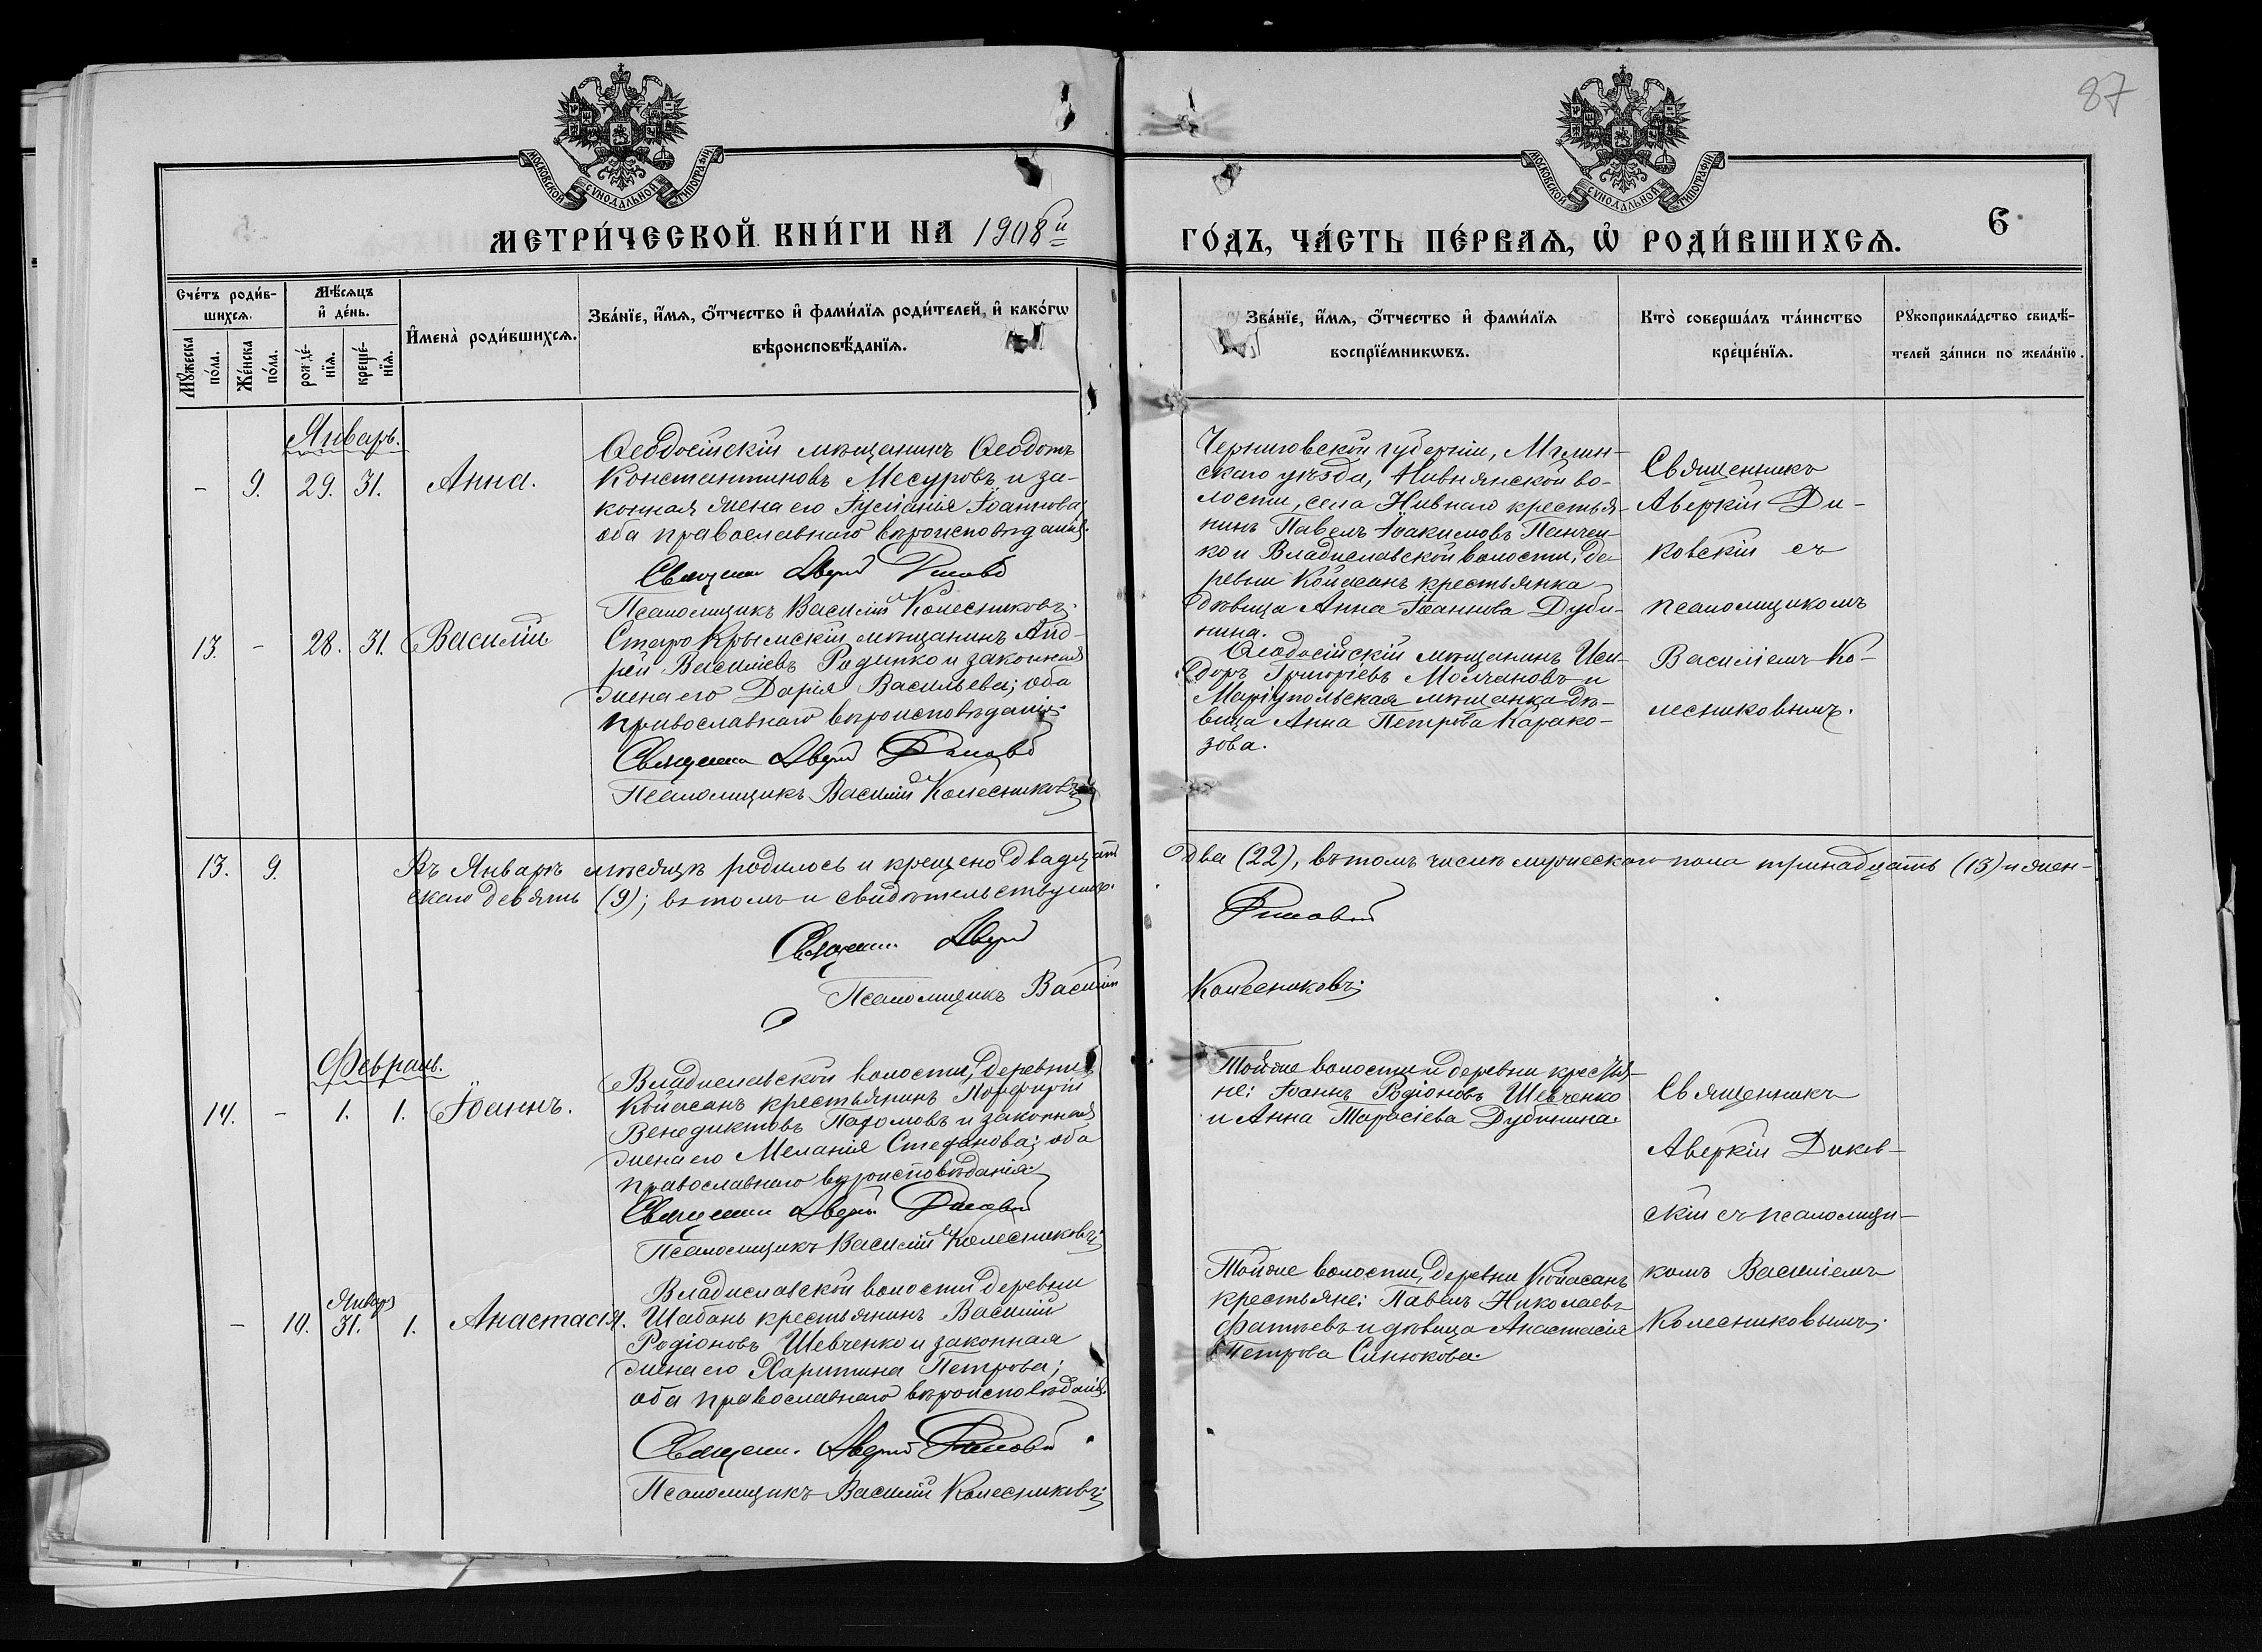 87
МОСКОВСКОЙ СѴНОДАЛЬНОЙ ТИПОГРАФІИ
МОСКОВСКОЙ СѴНОДАЛЬНОЙ ТИПОГРАФІИ
МЕТРИ́ЧЕСКОЙ КНИ́ГИ НА 1908й
ГО́ДЪ, ЧА́СТЬ ПЕ́РВАѦ, Ѡ҆ РОДИ́ВШИХСѦ.
6
Счéтъ роди́в-
шихсѧ.
Мꙋ́жеска
по́ла.
Же́нска
по́ла.
Мѣ́сѧцъ
и҆ де́нь.
рожде́-
нїѧ.
креще́-
нїѧ.
И҆мена̀ роди́вшихсѧ.
Зва́нїе, и҆́мѧ, ѻ҆́тчество и҆ фами́лїѧ роди́телей, и҆ како́гѡ
вѣроисповѣ́данїѧ.
Зва́нїе, и҆́мѧ, ѻ҆́тчество и҆ фами́лїѧ
воспрїе́мникѡвъ.
Кто̀ соверша́лъ та́инство
креще́нїѧ.
Рꙋкоприкла́дство свидѣ́-
телей за́писи по жела́нїю.
Январь.
- 9. 29. 31. Анна.
Ѳеодосійскій мѣщанинъ Ѳеодотъ
Константиновъ Месуровъ и за-
конная жена его Іусианія Іоаннова,
оба православнаго вѣроисповѣданія.
Священ. Аверкій Диковскій
Псаломщикъ Василій Колесниковъ.
Черниговской губерніи, Мглин-
скаго уѣзда, Нивнянской во-
лости, села Нивнаго крестья-
нинъ Павелъ Іоакимовъ Панчен-
ко и Владиславской волости, де
ревни Койасанъ крестьянка
дѣвица Анна Іоаннова Дуби-
нина.
Священникъ
Аверкій Ди-
ковскій съ
псаломщикомъ
Василіемъ Ко-
лесниковымъ.
13. - 28. 31. Василій
Старо Крымскій мѣщанинъ Анд-
рей Василіевъ Родинко и законная
жена его Дарія Васильева; оба
православнаго вѣроисповѣданія.
Священ. Аверкій Диковскій
Псаломщикъ Василій Колесниковъ
Ѳеодосійскій мѣщанинъ Иси-
доръ Григоріевъ Молчановъ и
Маріупольская мѣщанка дѣ-
вица Анна Петрова Карако-
зова.
13. 9. Въ Январѣ мѣсяцѣ родилось и крещено двадцать два (22), въ томъ числѣ мужескаго пола тринадцать (13) и жен-
скаго девять (9); въ томъ и свидѣтельствуемъ.
Священ. Аверкій Диковскій
Псаломщикъ Василій Колесниковъ
Февраль.
14. - 1. 1. Іоаннъ.
Владиславской волости, деревни
Койасанъ крестьянинъ Порфирій
Венедиктовъ Пахомовъ и законная
жена его Меланія Стефанова; оба
православнаго вѣроисповѣданія.
Священ. Аверкій Диковскій
Псаломщикъ Василій Колесниковъ
Той же волости и деревни крестья-
не: Іоаннъ Родіоновъ Шевченко
и Анна Тарасіева Дубинина.
Священникъ
Аверкій Диков-
скій съ псаломщи-
комъ Василіемъ
Колесниковымъ.
Января
- 10. 31. 1. Анастасія.
Владиславской волости деревни
Шабань крестьянинъ Василій
Родіоновъ Шевченко и законная
жена его Харитина Петрова;
оба православнаго вѣроисповѣданія.
Священ. Аверкій Диковскій
Псаломщикъ Василій Колесниковъ
Той же волости, деревни Койасанъ
крестьяне: Павелъ Николаевъ
Фатѣевъ и дѣвица Анастасія
Петрова Синюкова.